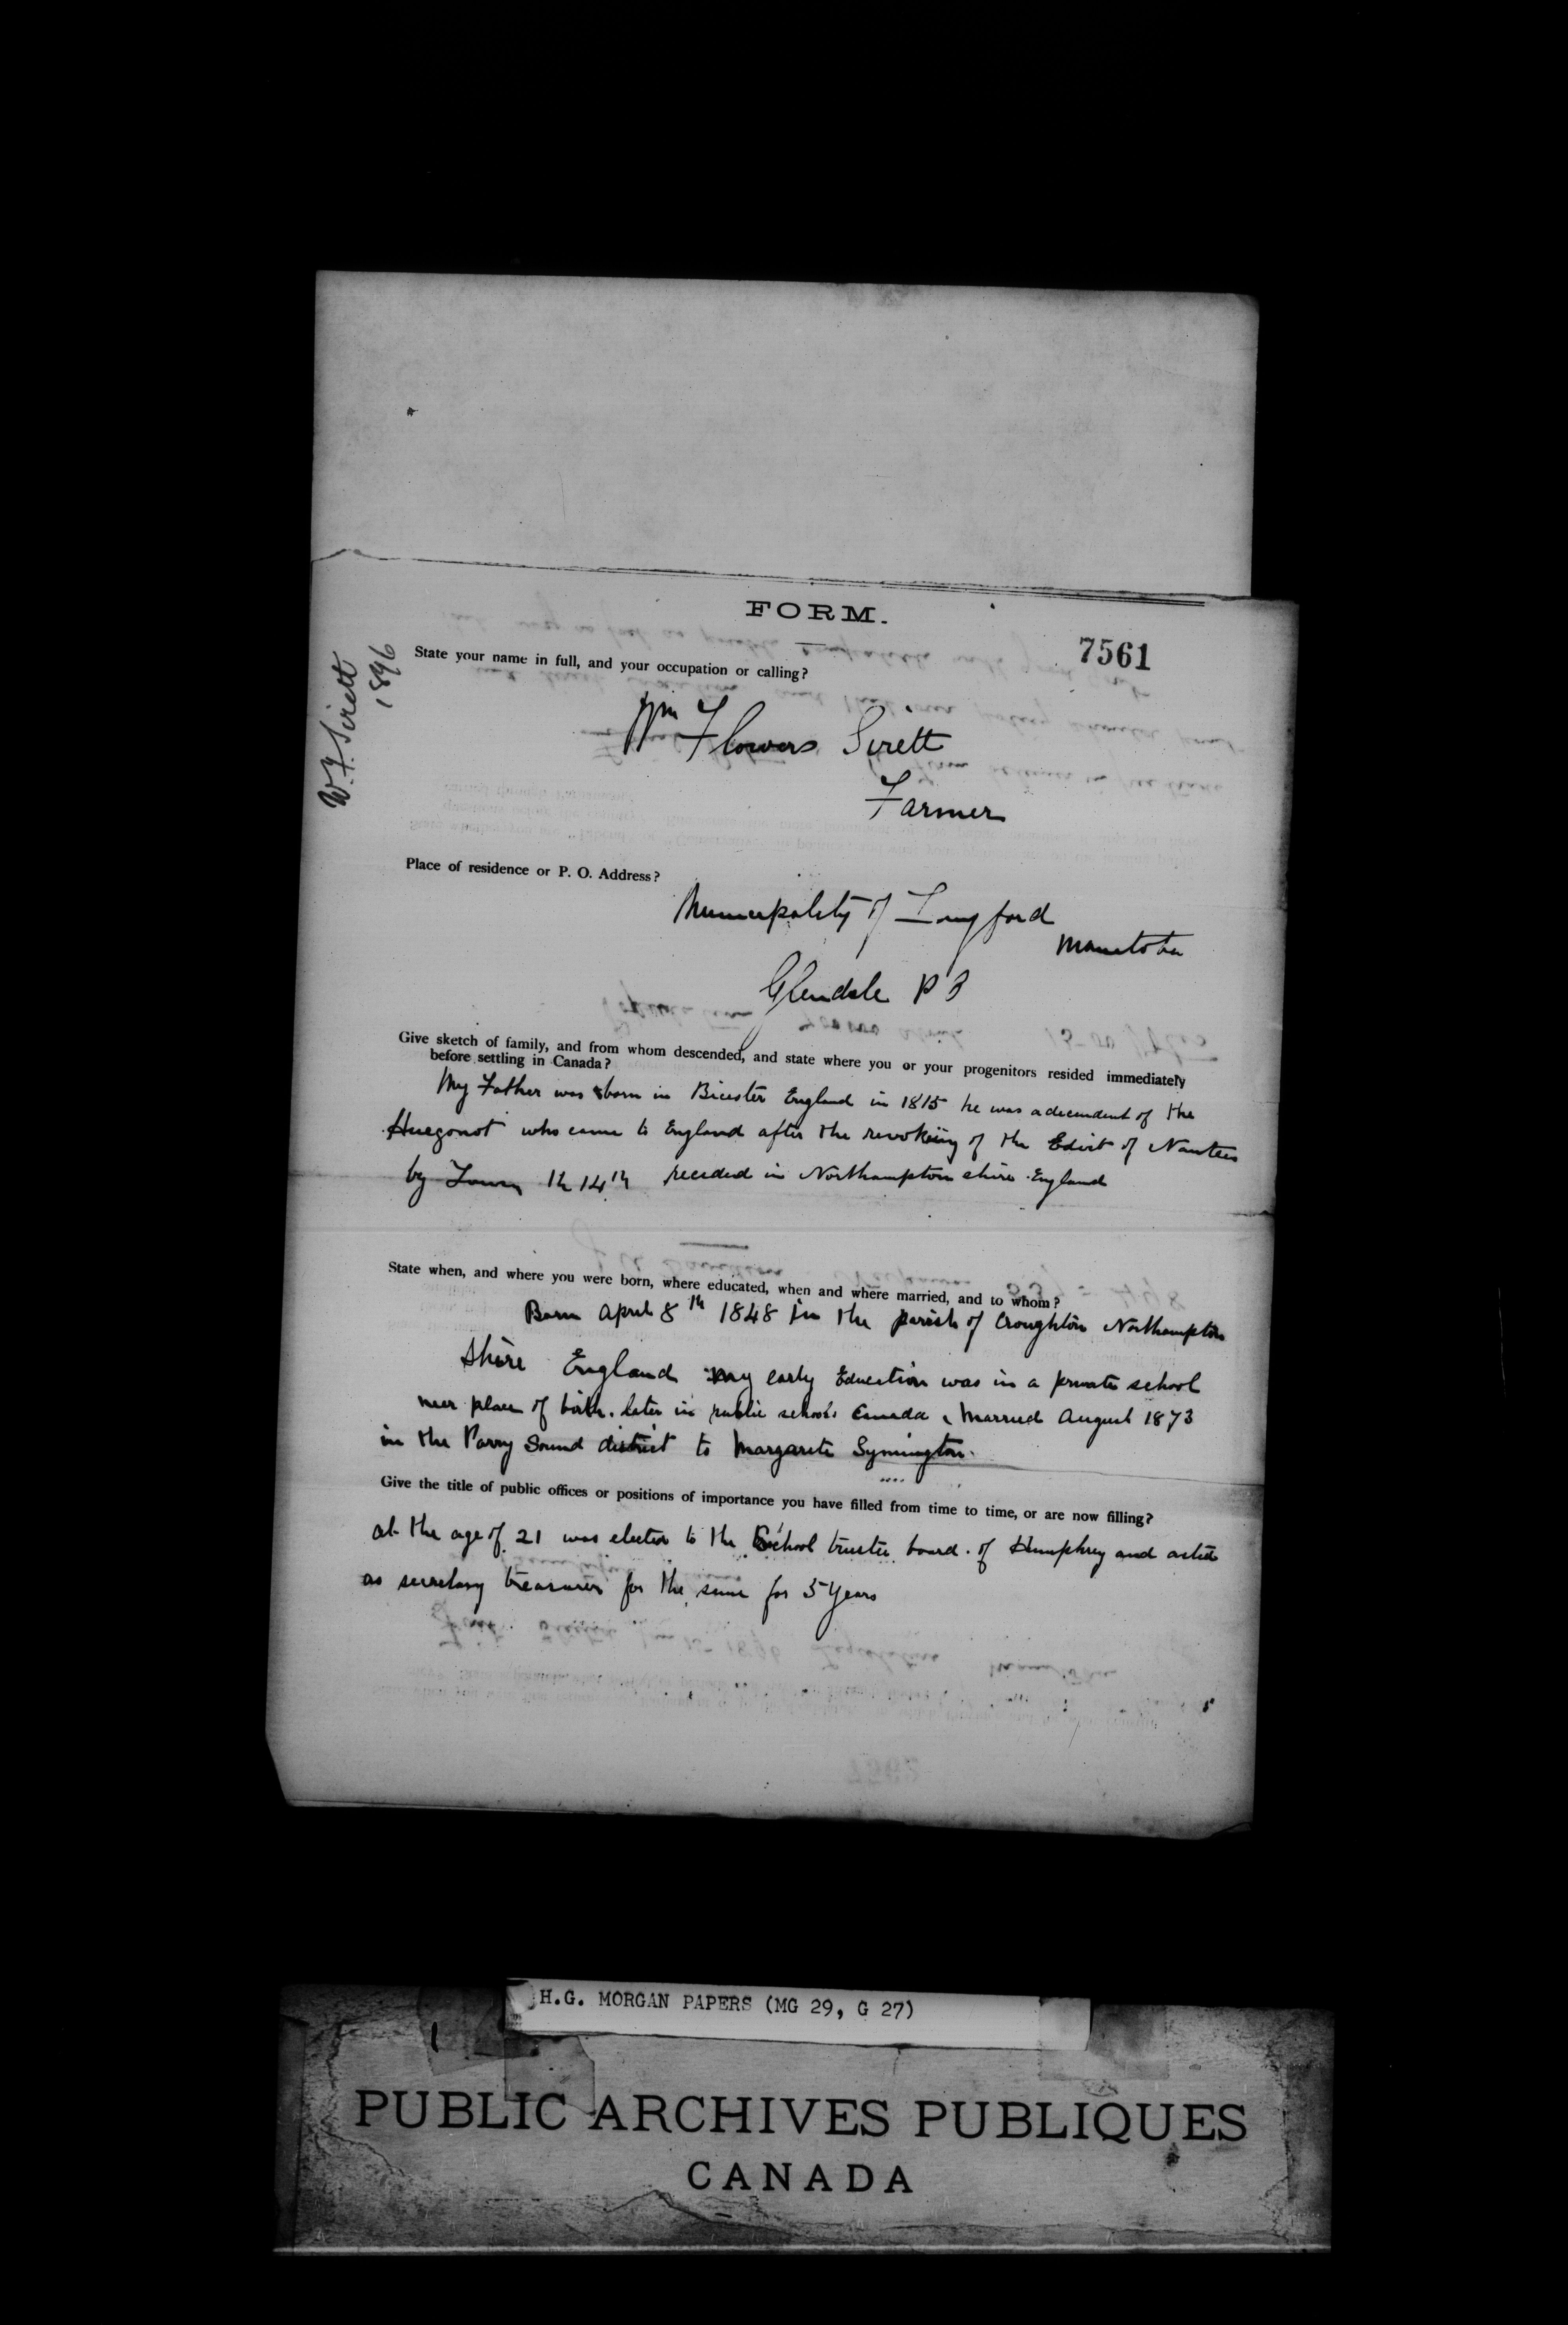 FORM.
7561
W. F. Sirett
1896
State your name in full, and your occupation or calling?
Wm Flowers Sirett
Farmer
Place of residence or P. O. Address?
Municipality of Langford
Manitoba
Glendale P O
Give sketch of family, and from whom descended, and state where you or your progenitors resided immediately
before settling in Canada?
My Father was born in Bicester England in 1815 he was a decendent of the
Huegonot who came to England after the revoking of the Edict of Nantees
by Louis the 14th receded in Northampton shire England
State when, and where you were born, where educated, when and where married, and to whom?
Born April 8th 1848 in the parish of Croughton Northampton
Shire England my early Education was in a private school
near place of birth. later in public schools Canada, Married August 1873
in the Parry Sound district to Margarete Symington.
Give the title of public offices or positions of importance you have filled from time to time, or are now filling?
at the age of 21 was elected to the School trustee board. of Humphrey and acted
as secretary treasurer for the same for 5 years
H.G. MORGAN PAPERS (MG 29, G 27)
PUBLIC ARCHIVES PUBLIQUES
CANADA